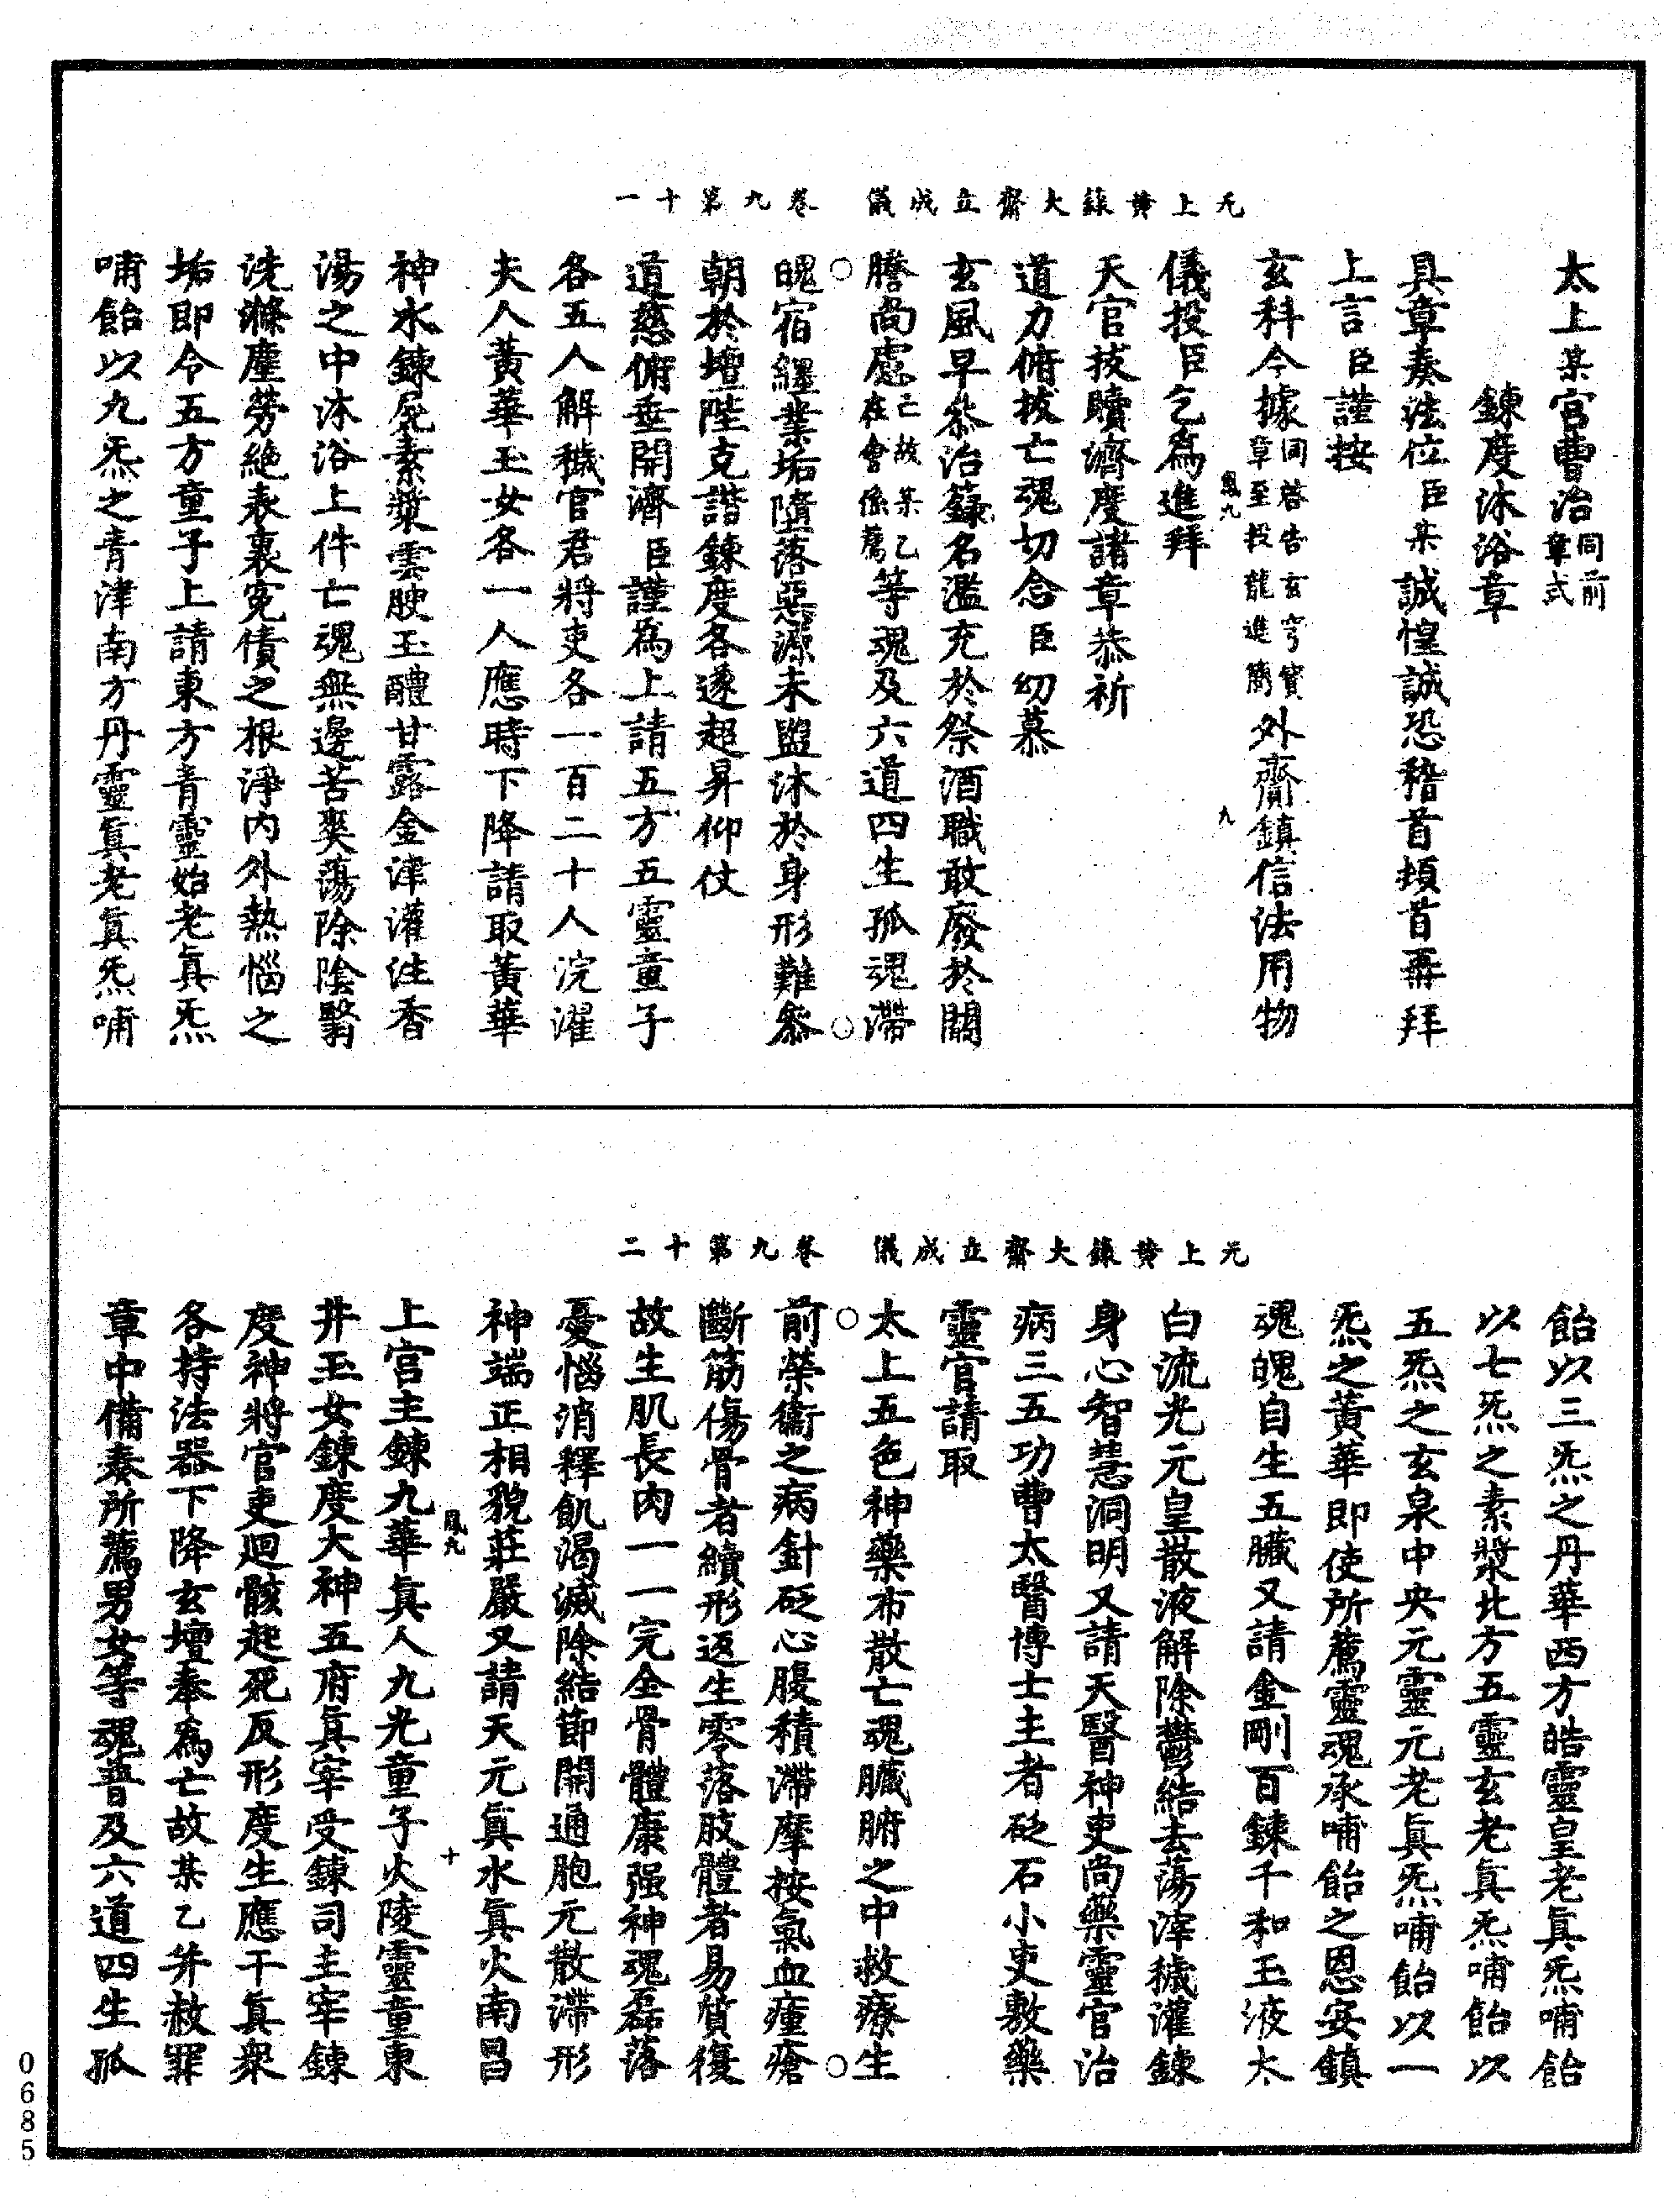 无上黃籙大齋立成儀　卷九第十一
太上某宮曹治同前章式
鍊度沐浴章
具章奏法位臣某誠惶誠恐稽首頓首再拜
上言臣謹按
玄科今據同啓告玄穹寶章至投龍進簡外齋鎮信法用物
儀投臣乞為進拜
鳳九　九
天官拔贖濟度諸章恭祈
道力俯拔亡魂切念臣幼慕
玄風早叅治籙名濫充於祭酒職敢廢於關
謄尚慮亡故某乙在會係薦等魂及六道四生孤魂滯
魄宿纏業垢隨落惡源未盥沐於身形難叅
朝於壇陛克諧鍊度各遂超昇仰仗
道慈俯垂開濟臣謹為上請五方五靈童子
各五人解穢官君將吏各一百二十人浣濯
夫人黃華玉女各一人應時下降請取黃華
神水鍊尸素漿雲腴玉醴甘露金津灌注香
湯之中沐浴上件亡魂無邊苦爽蕩除陰翳
洗滌塵勞絕表裏冤債之根淨內外熱惱之
垢即令五方童子上請東方青靈始老眞炁
哺飴以九炁之青津南方丹靈眞老眞炁哺
无上黃籙大齋立成儀　卷九第十二
飴以三炁之丹華西方皓靈皇老眞炁哺飴
以七炁之素漿北方五靈玄老眞炁哺飴以
五炁之玄泉中央元靈元老眞炁哺飴以一
炁之黃華即使所薦靈魂承哺飴之恩安鎮
魂魄自生五臟又請金剛百鍊千和玉液太
白流光元皇散液解除鬱結去蕩滓穢灌鍊
身心智慧洞明又請天醫神吏尚藥靈官治
病三五功曹太醫博士主者砭石小吏敷藥
靈官請取
太上五色神藥布散亡魂臟腑之中救療生
前榮衞之病針砭心腹積滯摩按氣血瘇瘡
斷筋傷骨者續形返生零落肢體者易質復
故生肌長肉一一完全骨體康强神魂磊落
憂惱消釋飢渴滅除結節開通胞元散滯形
神端正相貌莊嚴又請天元眞水眞火南昌
鳳九　十
上宮主鍊九華眞人九光童子火陵靈童東
井玉女鍊度大神五府眞宰受鍊司主宰鍊
度神將官吏迴骸起死反形度生應干眞衆
各持法器下降玄壇奉為亡故某乙并赦罪
章中備奏所薦男女等魂普及六道四生孤
0685